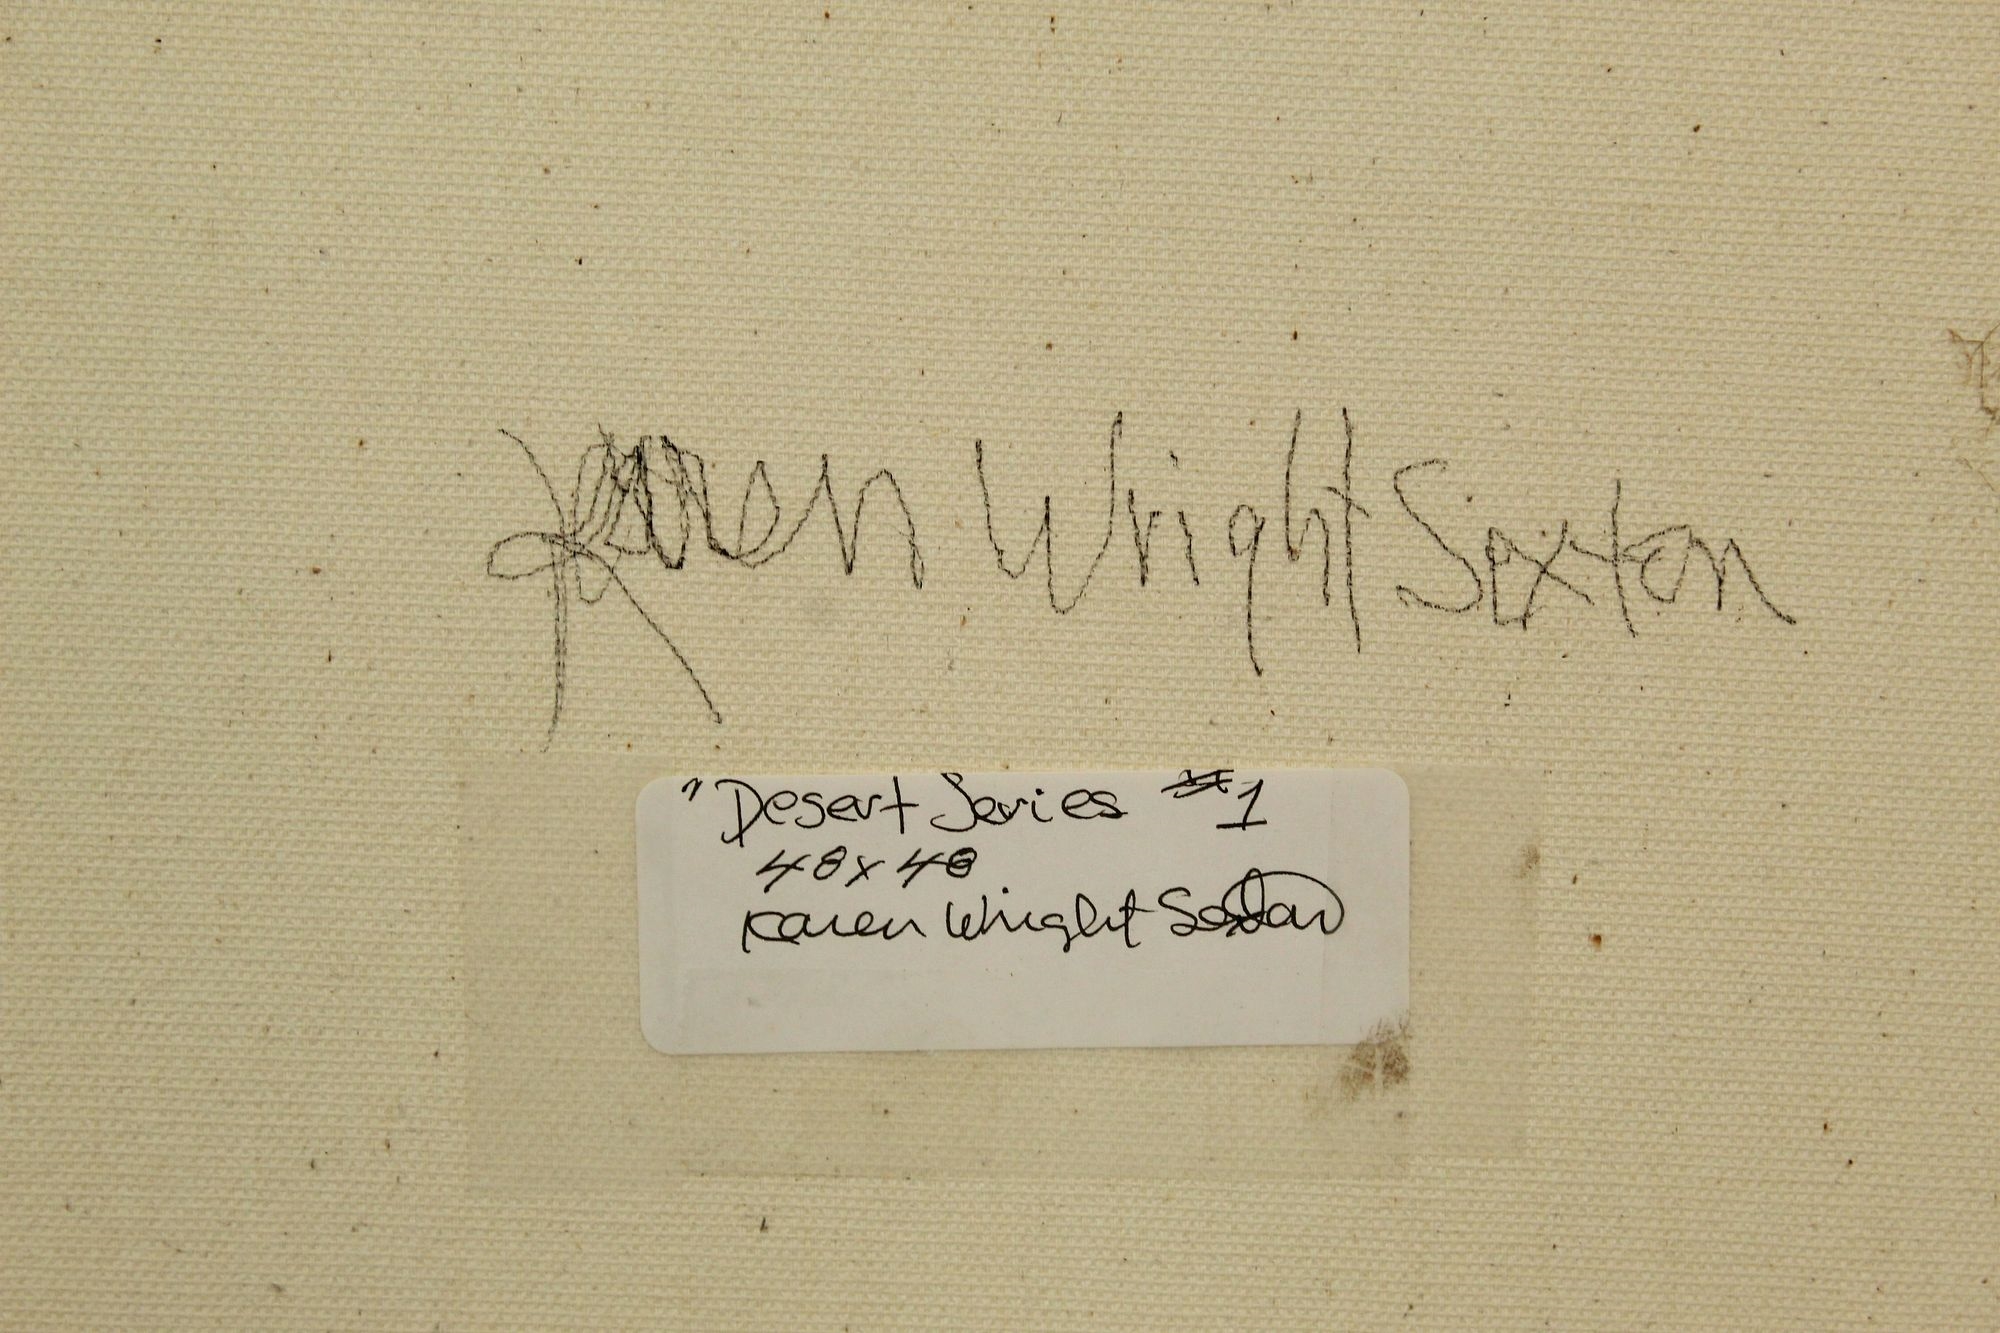 Karen Wright Sexton
"Desert Series #1
48x48
Karen Wright Sexton